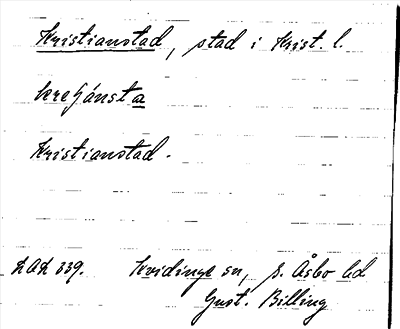 Kristianstad, stad i Krist. l.
kreʃánsta
Kristianstad.
LAL 339. Kvidinge sn, S. Åsbo hd
Gust. Billing